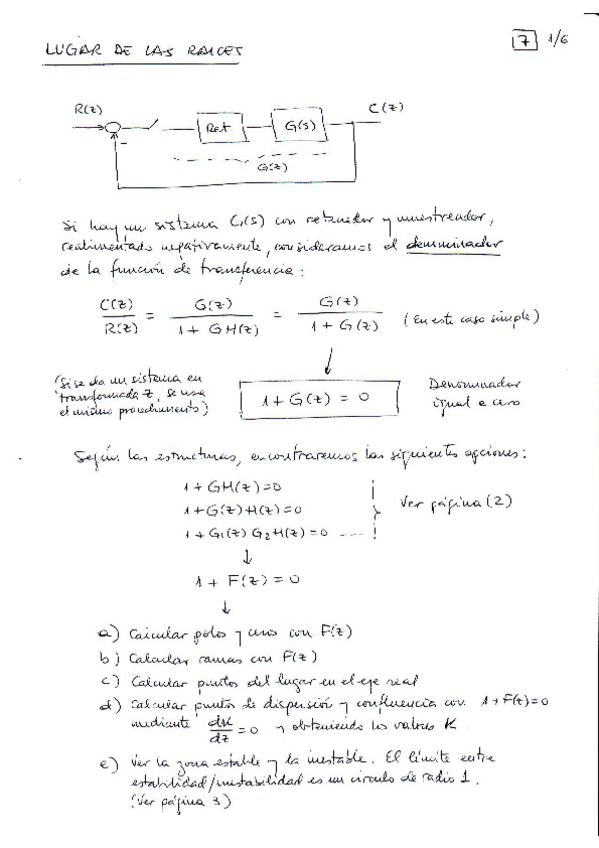 LUGAR DE LAS RAICES
7 1/6
R(z) Ret G(s) C(z)
-
G(z)
Si hay un sistema G(s) con retenedor y muestreador,
realimentado negativamente, consideramos el denominador
de la función de transferencia:
C(z)/R(z) = G(z)/(1 + GH(z)) = G(z)/(1 + G(z)) (En este caso simple)
↓
(Si se da un sistema en
transformada z, se usa
el mismo procedimiento)
1 + G(z) = 0
Denominador
igual a cero
Según las estructuras, encontraremos las siguientes opciones:
1 + GH(z) = 0
1 + G(z) H(z) = 0
1 + G1(z) G2H(z) = 0 ----
} Ver página (2)
↓
1 + F(z) = 0
↓
a) Calcular polos y ceros con F(z)
b) Calcular ramas con F(z)
c) Calcular puntos del lugar en el eje real
d) Calcular puntos de dispersión y confluencia con 1 + F(z) = 0
mediante dK/dz = 0 y obteniendo los valores K.
e) Ver la zona estable y la inestable. El límite entre
estabilidad/inestabilidad es un circulo de radio 1.
(Ver página 3)